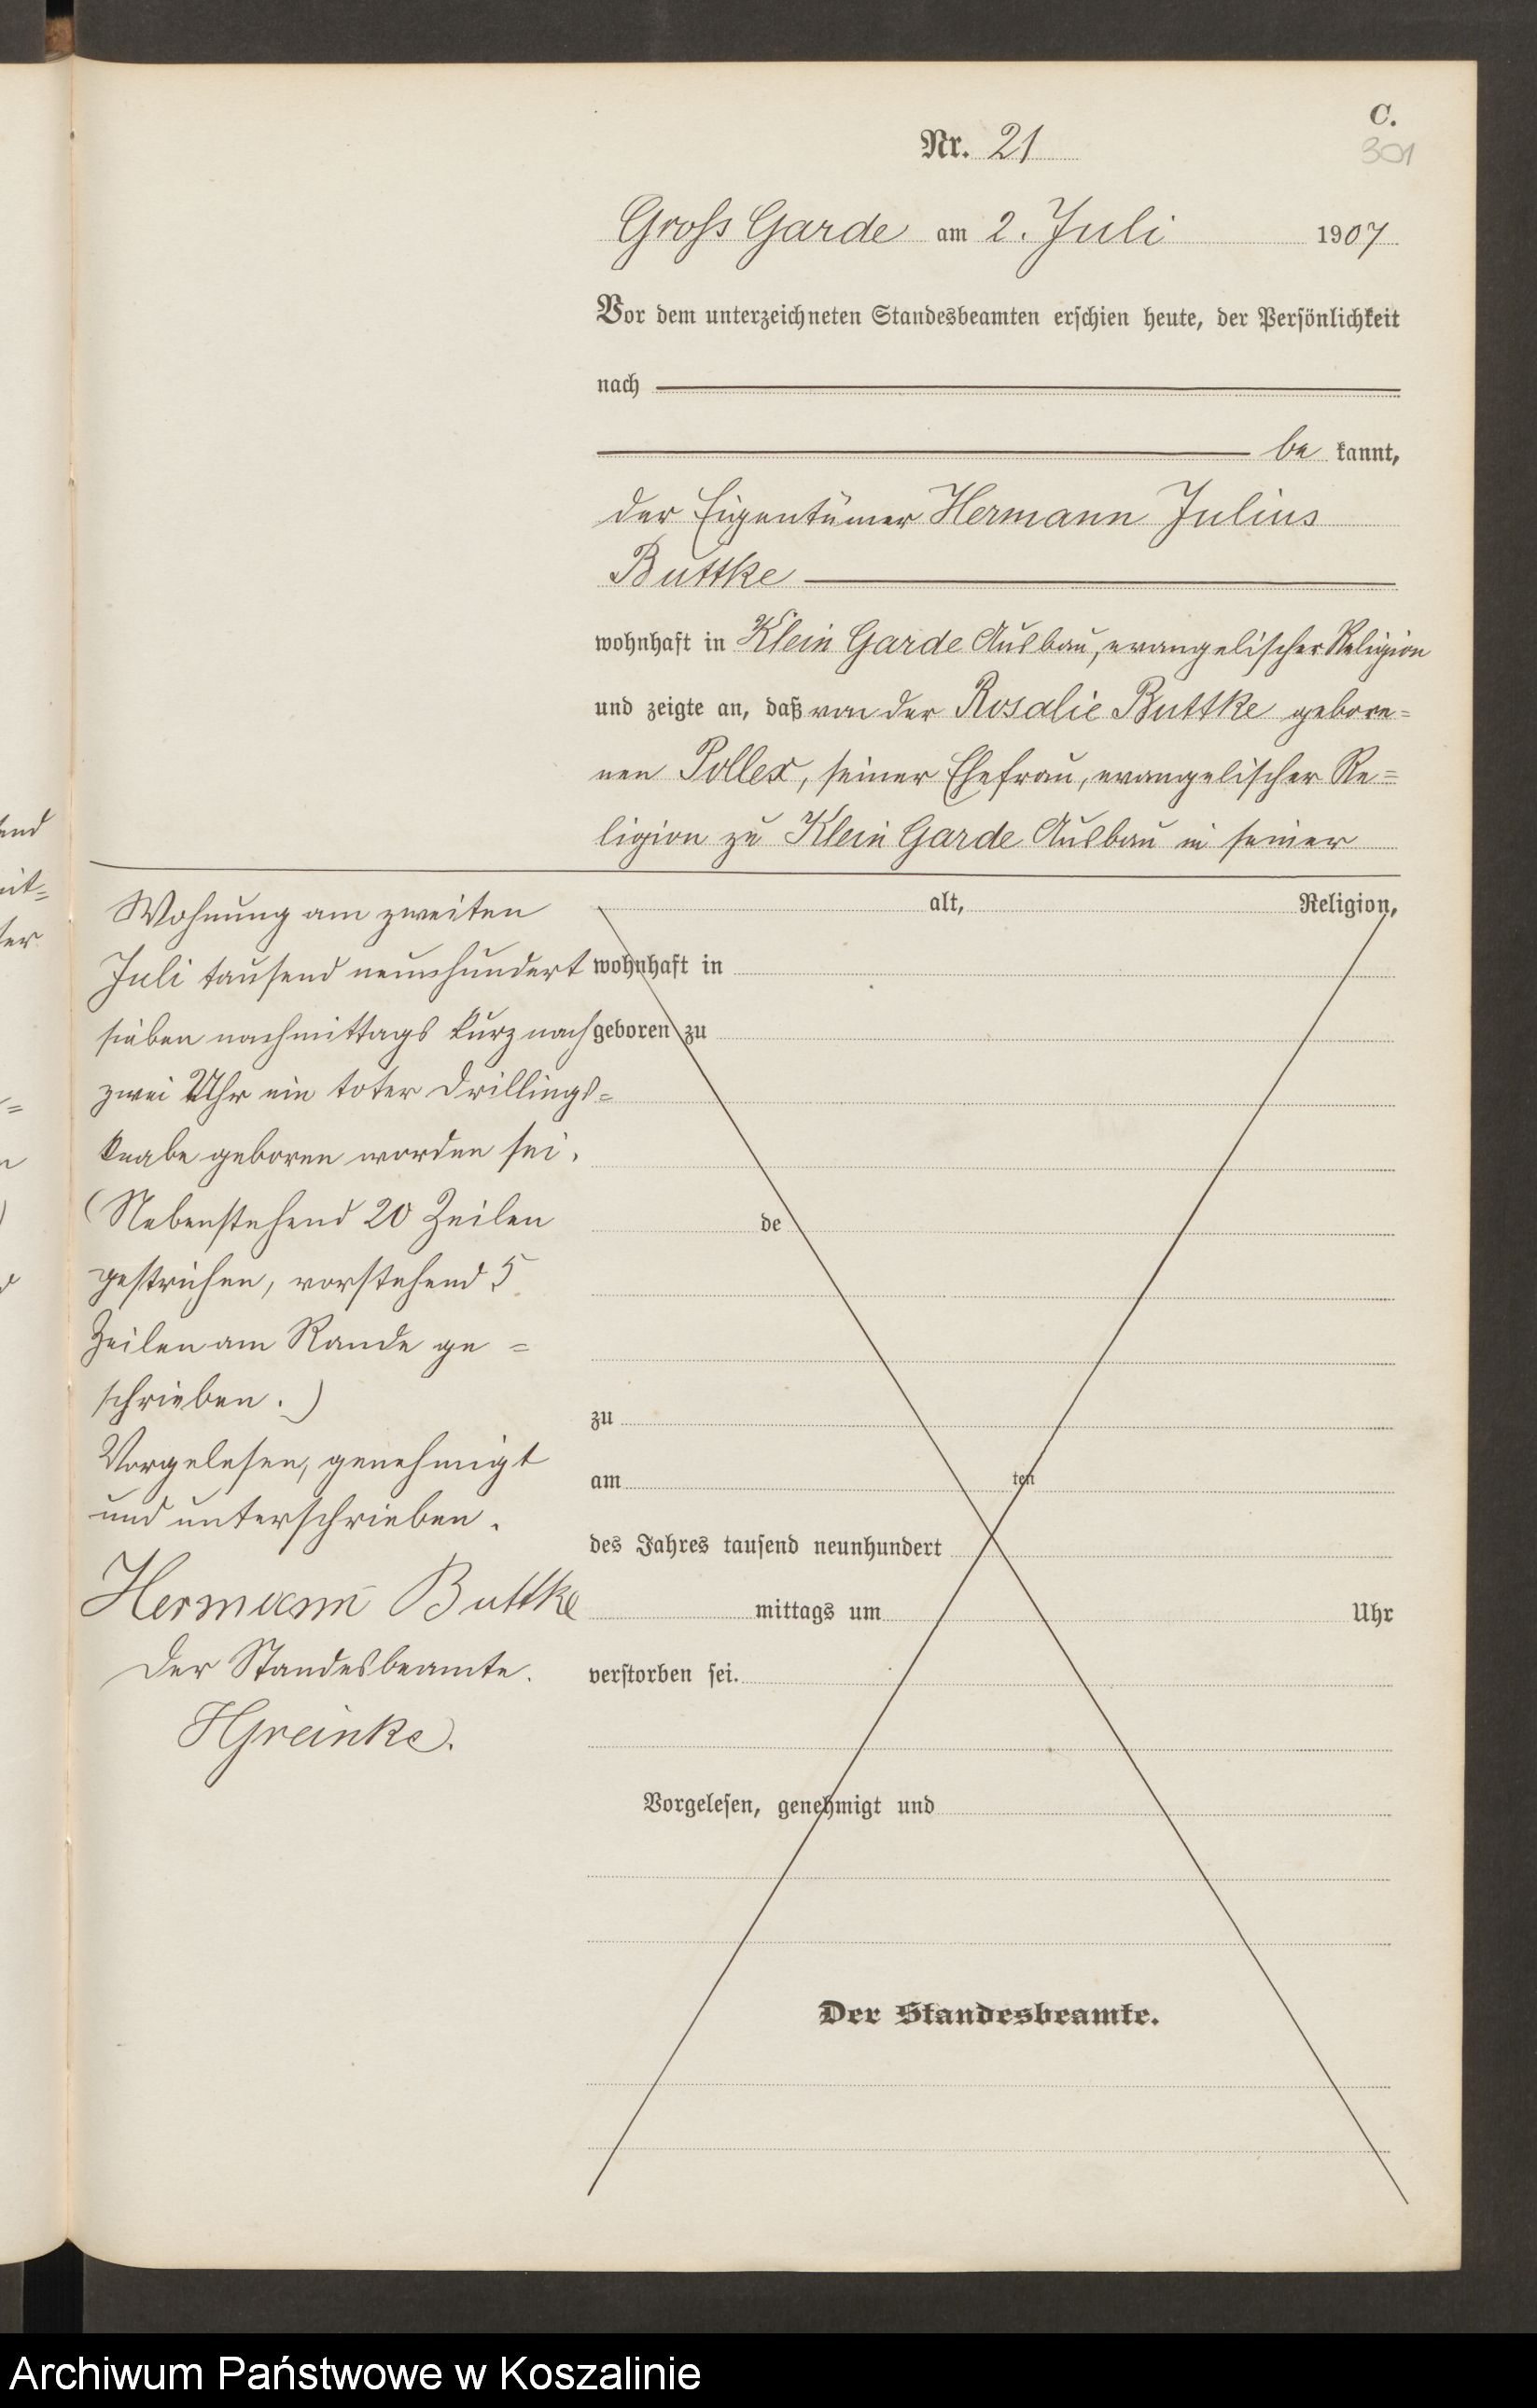 C.
301
Nr. 21
Gross Garde am 2. Juli 1907
Vor dem unterzeichneten Standesbeamten erschien heute, der Persönlichkeit
nach
be kannt,
der Eigentümer Hermann Julius
Buttke
wohnhaft in Klein Garde Ausbau, evangelischer Religion
und zeigte an, daß von der Rosalie Buttke gebore=
nen Pollex, seiner Ehefrau, evangelischer Re=
ligion zu Klein Garde Ausbau in seiner
Wohnung am zweiten
Juli tausend neunhundert
sieben nachmittags kurz nach
zwei Uhr ein toter Drillings=
knabe geboren worden sei.
(Nebenstehend 20 Zeilen
gestrichen, vorstehend 5
Zeilen am Rande ge=
schrieben.)
Vorgelesen, genehmigt
und unterschrieben.
Hermann Buttke
Der Standesbeamte.
HGreinke.
alt, Religion,
wohnhaft in
geboren zu
de
zu
am ten
des Jahres tausend neunhundert
mittags um Uhr
verstorben sei.
Vorgelesen, genehmigt und
Der Standesbeamte.
Archiwum Państwowe w Koszalinie